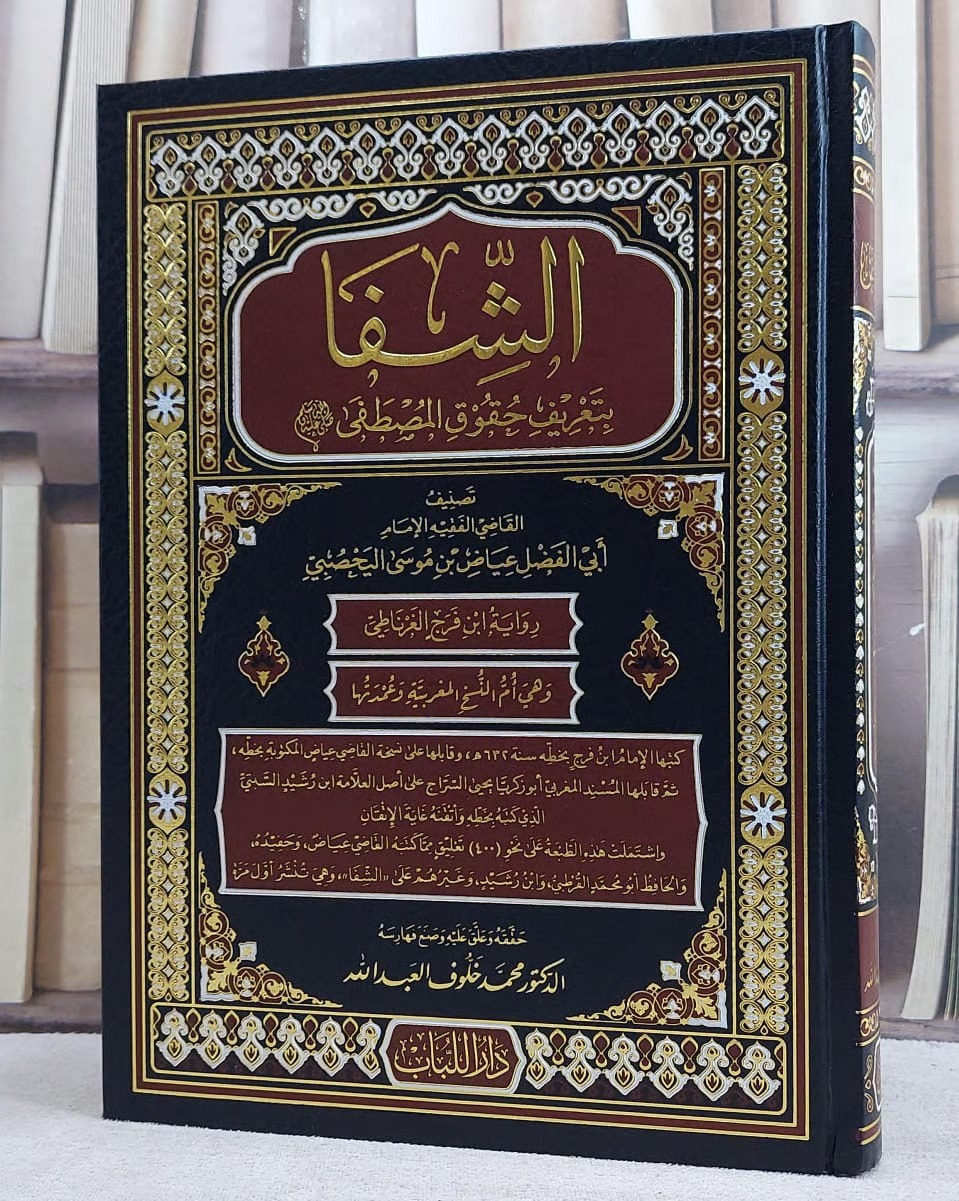 الشِّفَا
بِتَعْرِيفِ حُقُوقِ المُصْطَفَى ﷺ
تَصْنِيفُ
القَاضِي الفَقِيهِ الإِمَامِ
أَبِي الفَضْلِ عِيَاضِ بْنِ مُوسَى اليَحْصُبِيِّ
رِوَايَةُ ابْنِ فَرَجٍ الغَرْنَاطِيِّ
وَهِيَ أُمُّ النُّسَخِ المَغْرِبِيَّةِ وَعُمْدَتُهَا
كتبها الإمامُ ابنُ فرجٍ بخطِّه سنة ٦٣٢هـ، وقابلها على نسخة القاضي عياضٍ المكتوبة بخطِّه،
ثمَّ قابَلها المُسْنِد المغربيّ أبو زكريّا يحيى السَّرّاج على أصل العلّامة ابن رُشَيْدٍ السَّبْتيِّ
الَّذِي كَتَبَهُ بِخَطِّهِ وَأَتْقَنَهُ غَايَةَ الإِتْقَانِ
واشتملَتْ هَذِهِ الطَّبْعَةُ عَلَى نَحْوِ (٤٠٠) تَعْلِيقٍ مِمَّا كَتَبَهُ القَاضِي عِيَاضٌ، وَحَفِيدُهُ،
وَالحَافِظُ أَبُو مُحَمَّدٍ القُرْطُبِيُّ، وَابْنُ رُشَيْدٍ، وَغَيْرُهُمْ عَلَى «الشِّفَا»، وَهِيَ تُنْشَرُ أَوَّلَ مَرَّةٍ
حَقَّقَهُ وَعَلَّقَ عَلَيْهِ وَصَنَعَ فَهَارِسَهُ
الدكتور محمد خلوف العبد الله
دَارُ اللُّبَابِ